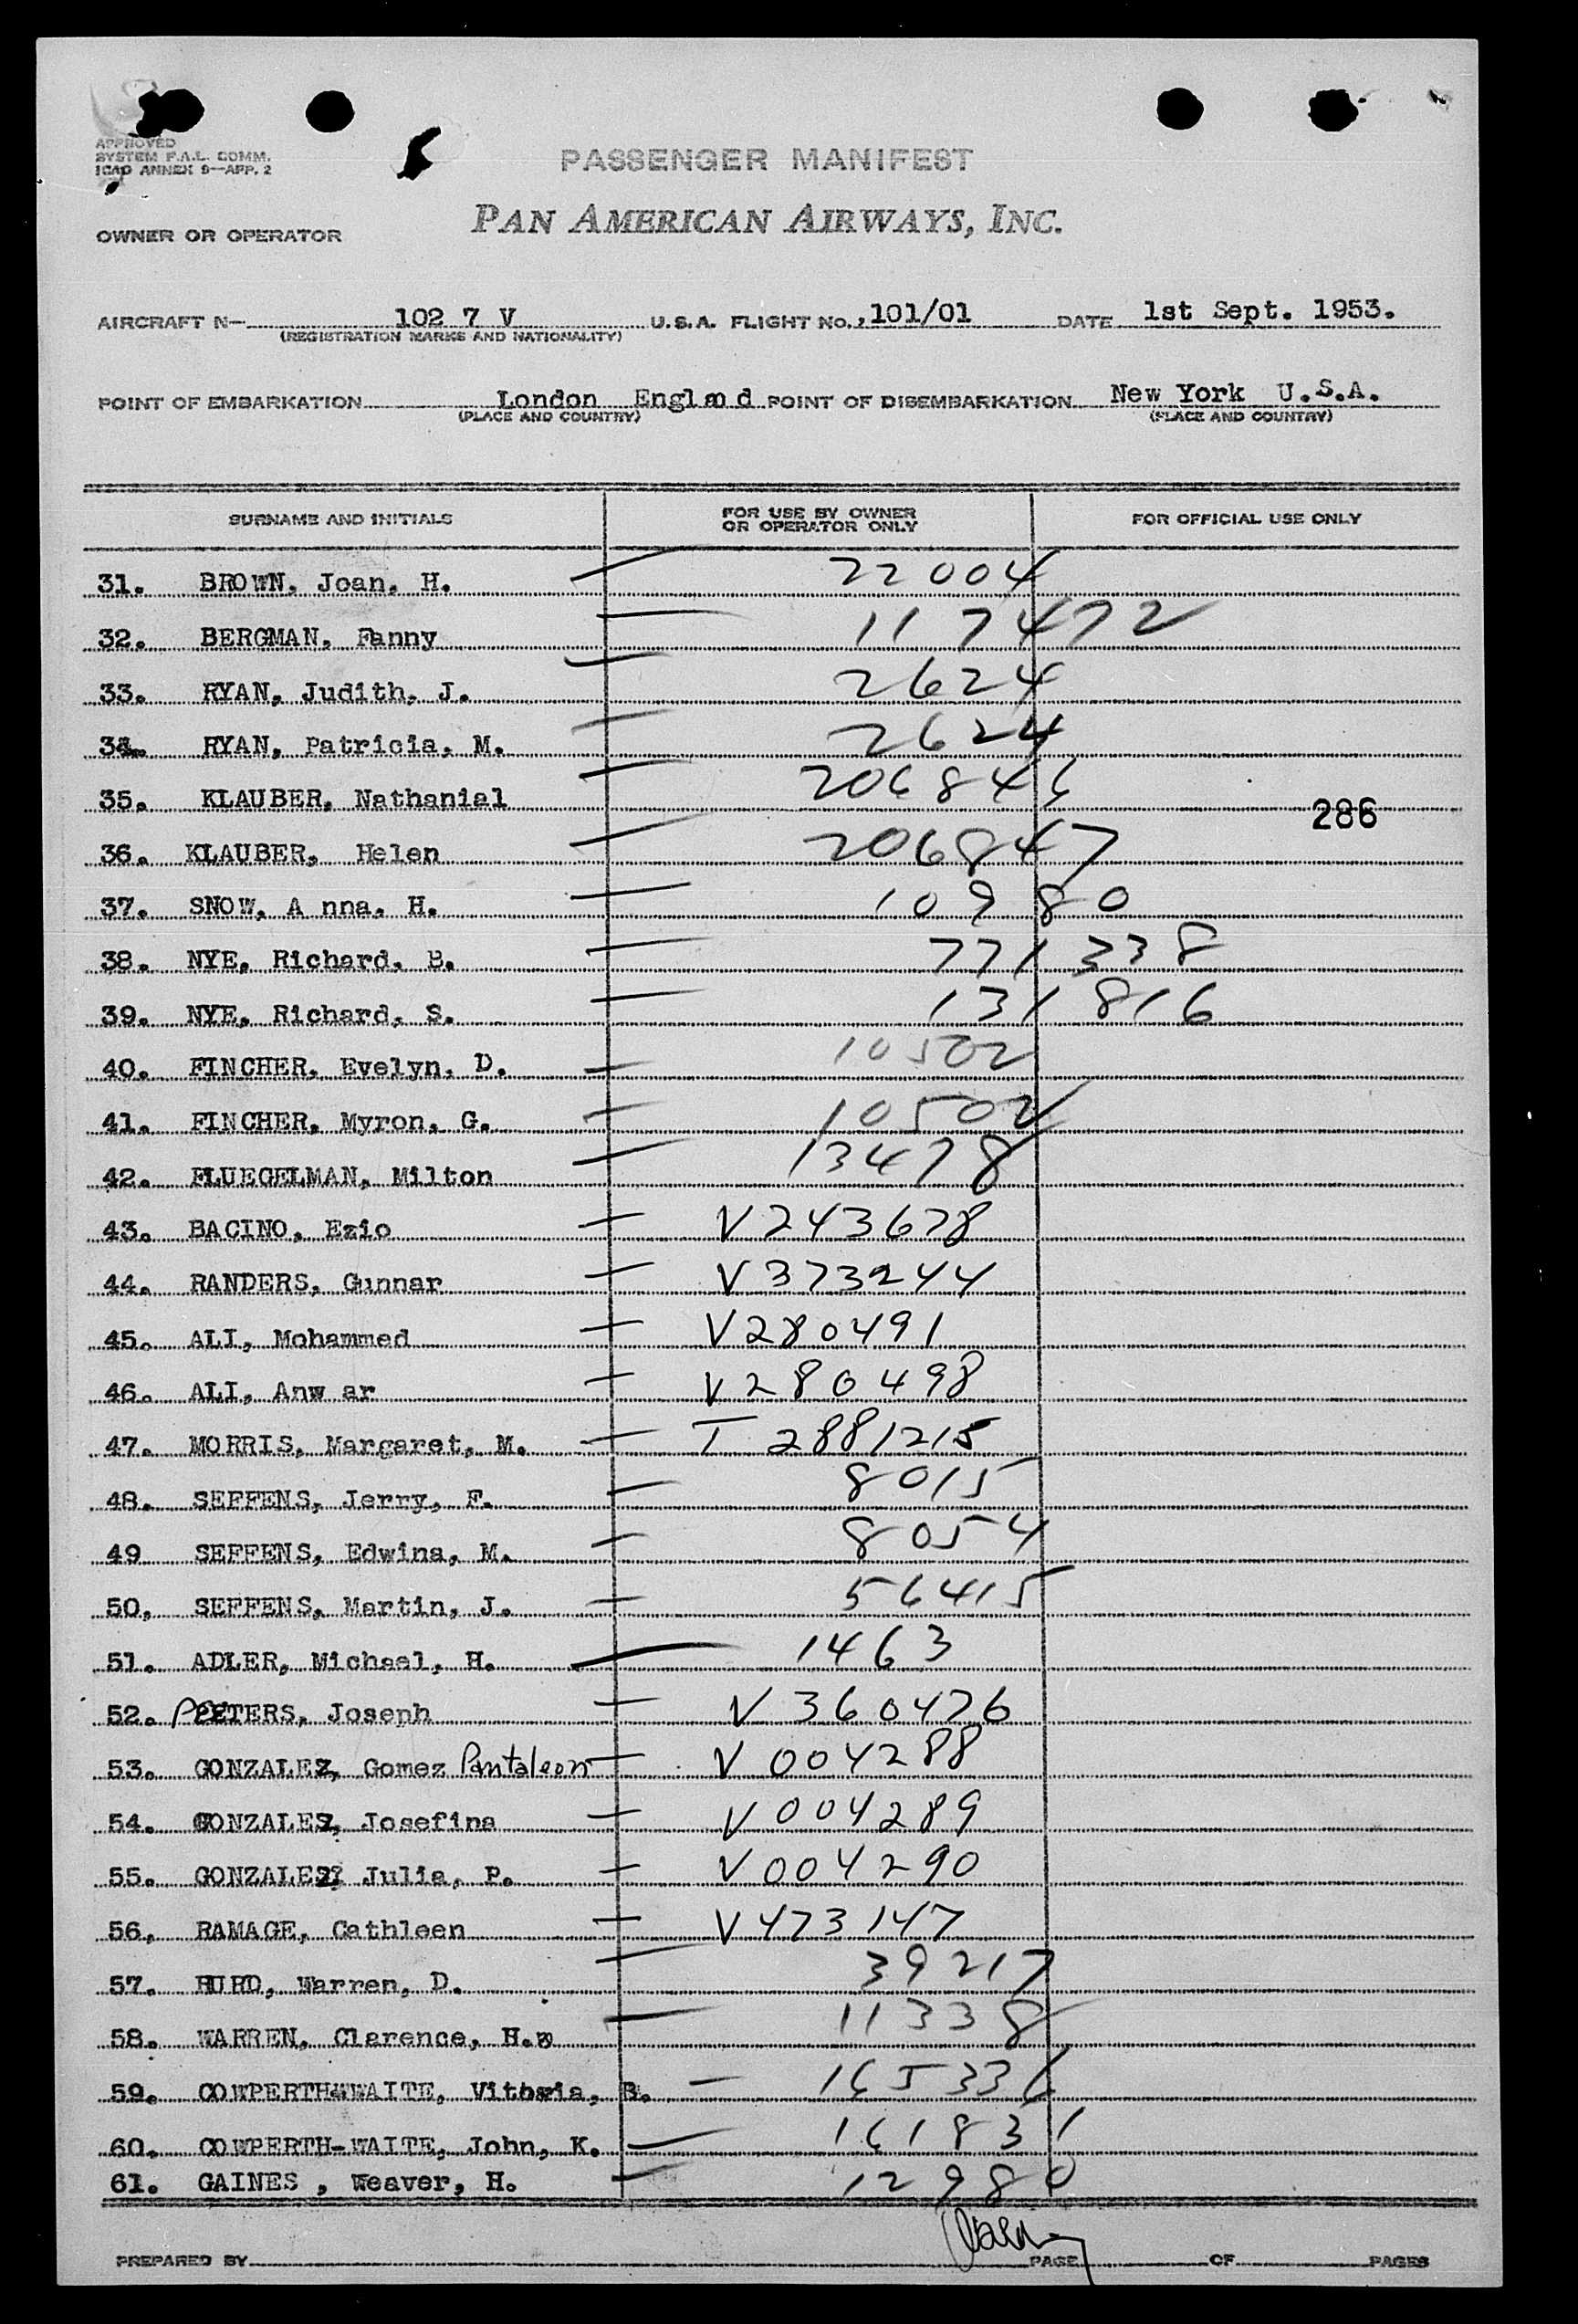 APPROVED
SYSTEM F.A.L. COMM.
ICAO ANNEX 9—APP. 2
PASSENGER MANIFEST
OWNER OR OPERATOR PAN AMERICAN AIRWAYS, INC.
AIRCRAFT N- 102 7 V U.S.A. FLIGHT NO., 101/01 DATE 1st Sept. 1953.
(REGISTRATION MARKS AND NATIONALITY)
POINT OF EMBARKATION London England POINT OF DISEMBARKATION New York U.S.A.
(PLACE AND COUNTRY) (PLACE AND COUNTRY)
SURNAME AND INITIALS FOR USE BY OWNER OR OPERATOR ONLY FOR OFFICIAL USE ONLY
31. BROWN, Joan, H. 22004
32. BERGMAN, Fanny 117472
33. RYAN, Judith, J. 2624
34. RYAN, Patricia, M. 2624
35. KLAUBER, Nathanial 206846
286
36. KLAUBER, Helen 206847
37. SNOW, A nna, H. 10980
38. NYE, Richard, B. 771338
39. NYE, Richard, S. 131816
40. FINCHER, Evelyn, D. 10502
41. FINCHER, Myron, G. 10502
42. FLUEGELMAN, Milton 13478
43. BACINO, Ezio V243678
44. RANDERS, Gunnar V373244
45. ALI, Mohammed V280491
46. ALI, Anw ar V280498
47. MORRIS, Margaret, M. T 2881215
48. SEFFENS, Jerry, F. 8015
49 SEFFENS, Edwina, M. 8054
50, SEFFENS, Martin, J. 56415
51. ADLER, Michael, H. 1463
52. PETERS, Joseph V 360476
53. GONZALEZ, Gomez Pantaleon V 004288
54. GONZALEZ, Josefina V 004289
55. GONZALEZ, Julia, P. V004290
56, RAMAGE, Cathleen V473147
57. HURD, Warren, D. 39217
58. WARREN, Clarence, H. 11338
59. COWPERTH-WAITE, Vitoria, B. 165336
60. COWPERTH-WAITE, John, K. 161831
61. GAINES , Weaver, H. 12980
PREPARED BY PAGE OF PAGES